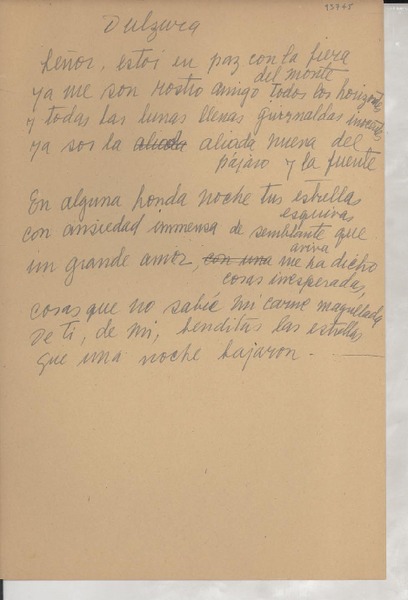 13745
Dulzura
Señor, estoi en paz con la fiera
del monte
ya me son rostro amigo todos los horizontes
y todas las lunas llenas guirnaldas
ya soi la alida aliada nueva del
pájaro y la fuente
En alguna honda noche tus estrellas
esquivas
con ansiedad immensa de semblante que
aviva
un grande amor, con una me ha dicho
cosas inesperadas,
cosas que no sabíe mi carne magullada
De ti, de mi, benditas las estrellas
que una noche bajaron.